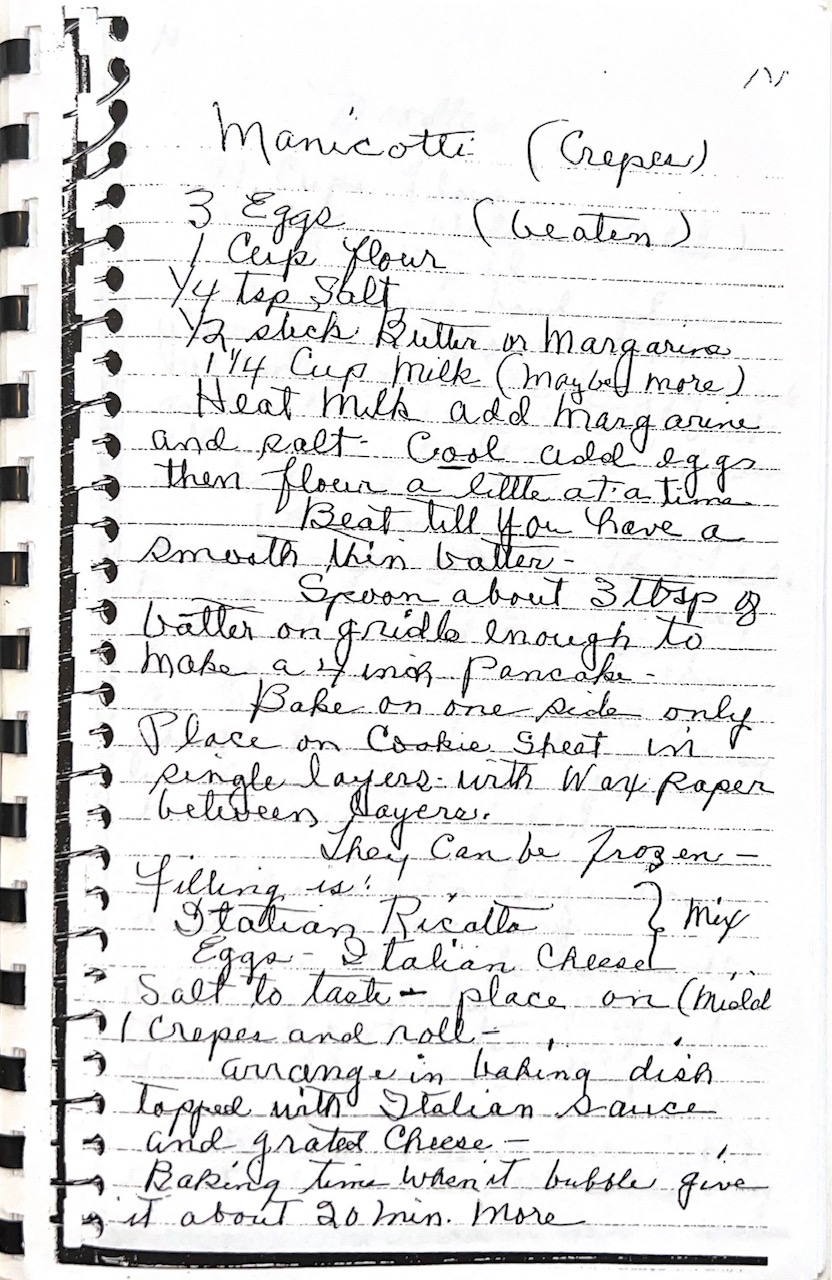 Manicotti (Crepes)
3 Eggs (beaten)
1 Cup flour
1/4 tsp Salt
1/2 stick Butter or Margarine
1 1/4 Cup Milk (Maybe more)
Heat Milk add Margarine
and salt - Cool add eggs
then flour a little at a time
Beat till you have a
smooth thin batter -
Spoon about 3 tbsp of
batter on gridle enough to
make a 4 inch pancake -
Bake on one side only
Place on Cookie Sheet in
single layers - with Wax paper
between layers.
They Can be frozen -
Filling is:
Italian Ricotta } Mix
Eggs - Italian Cheese
Salt to taste - place on
crepes and roll -
arrange in baking dish
topped with Italian Sauce
and grated Cheese -
Baking time when it bubble give
it about 20 min. More